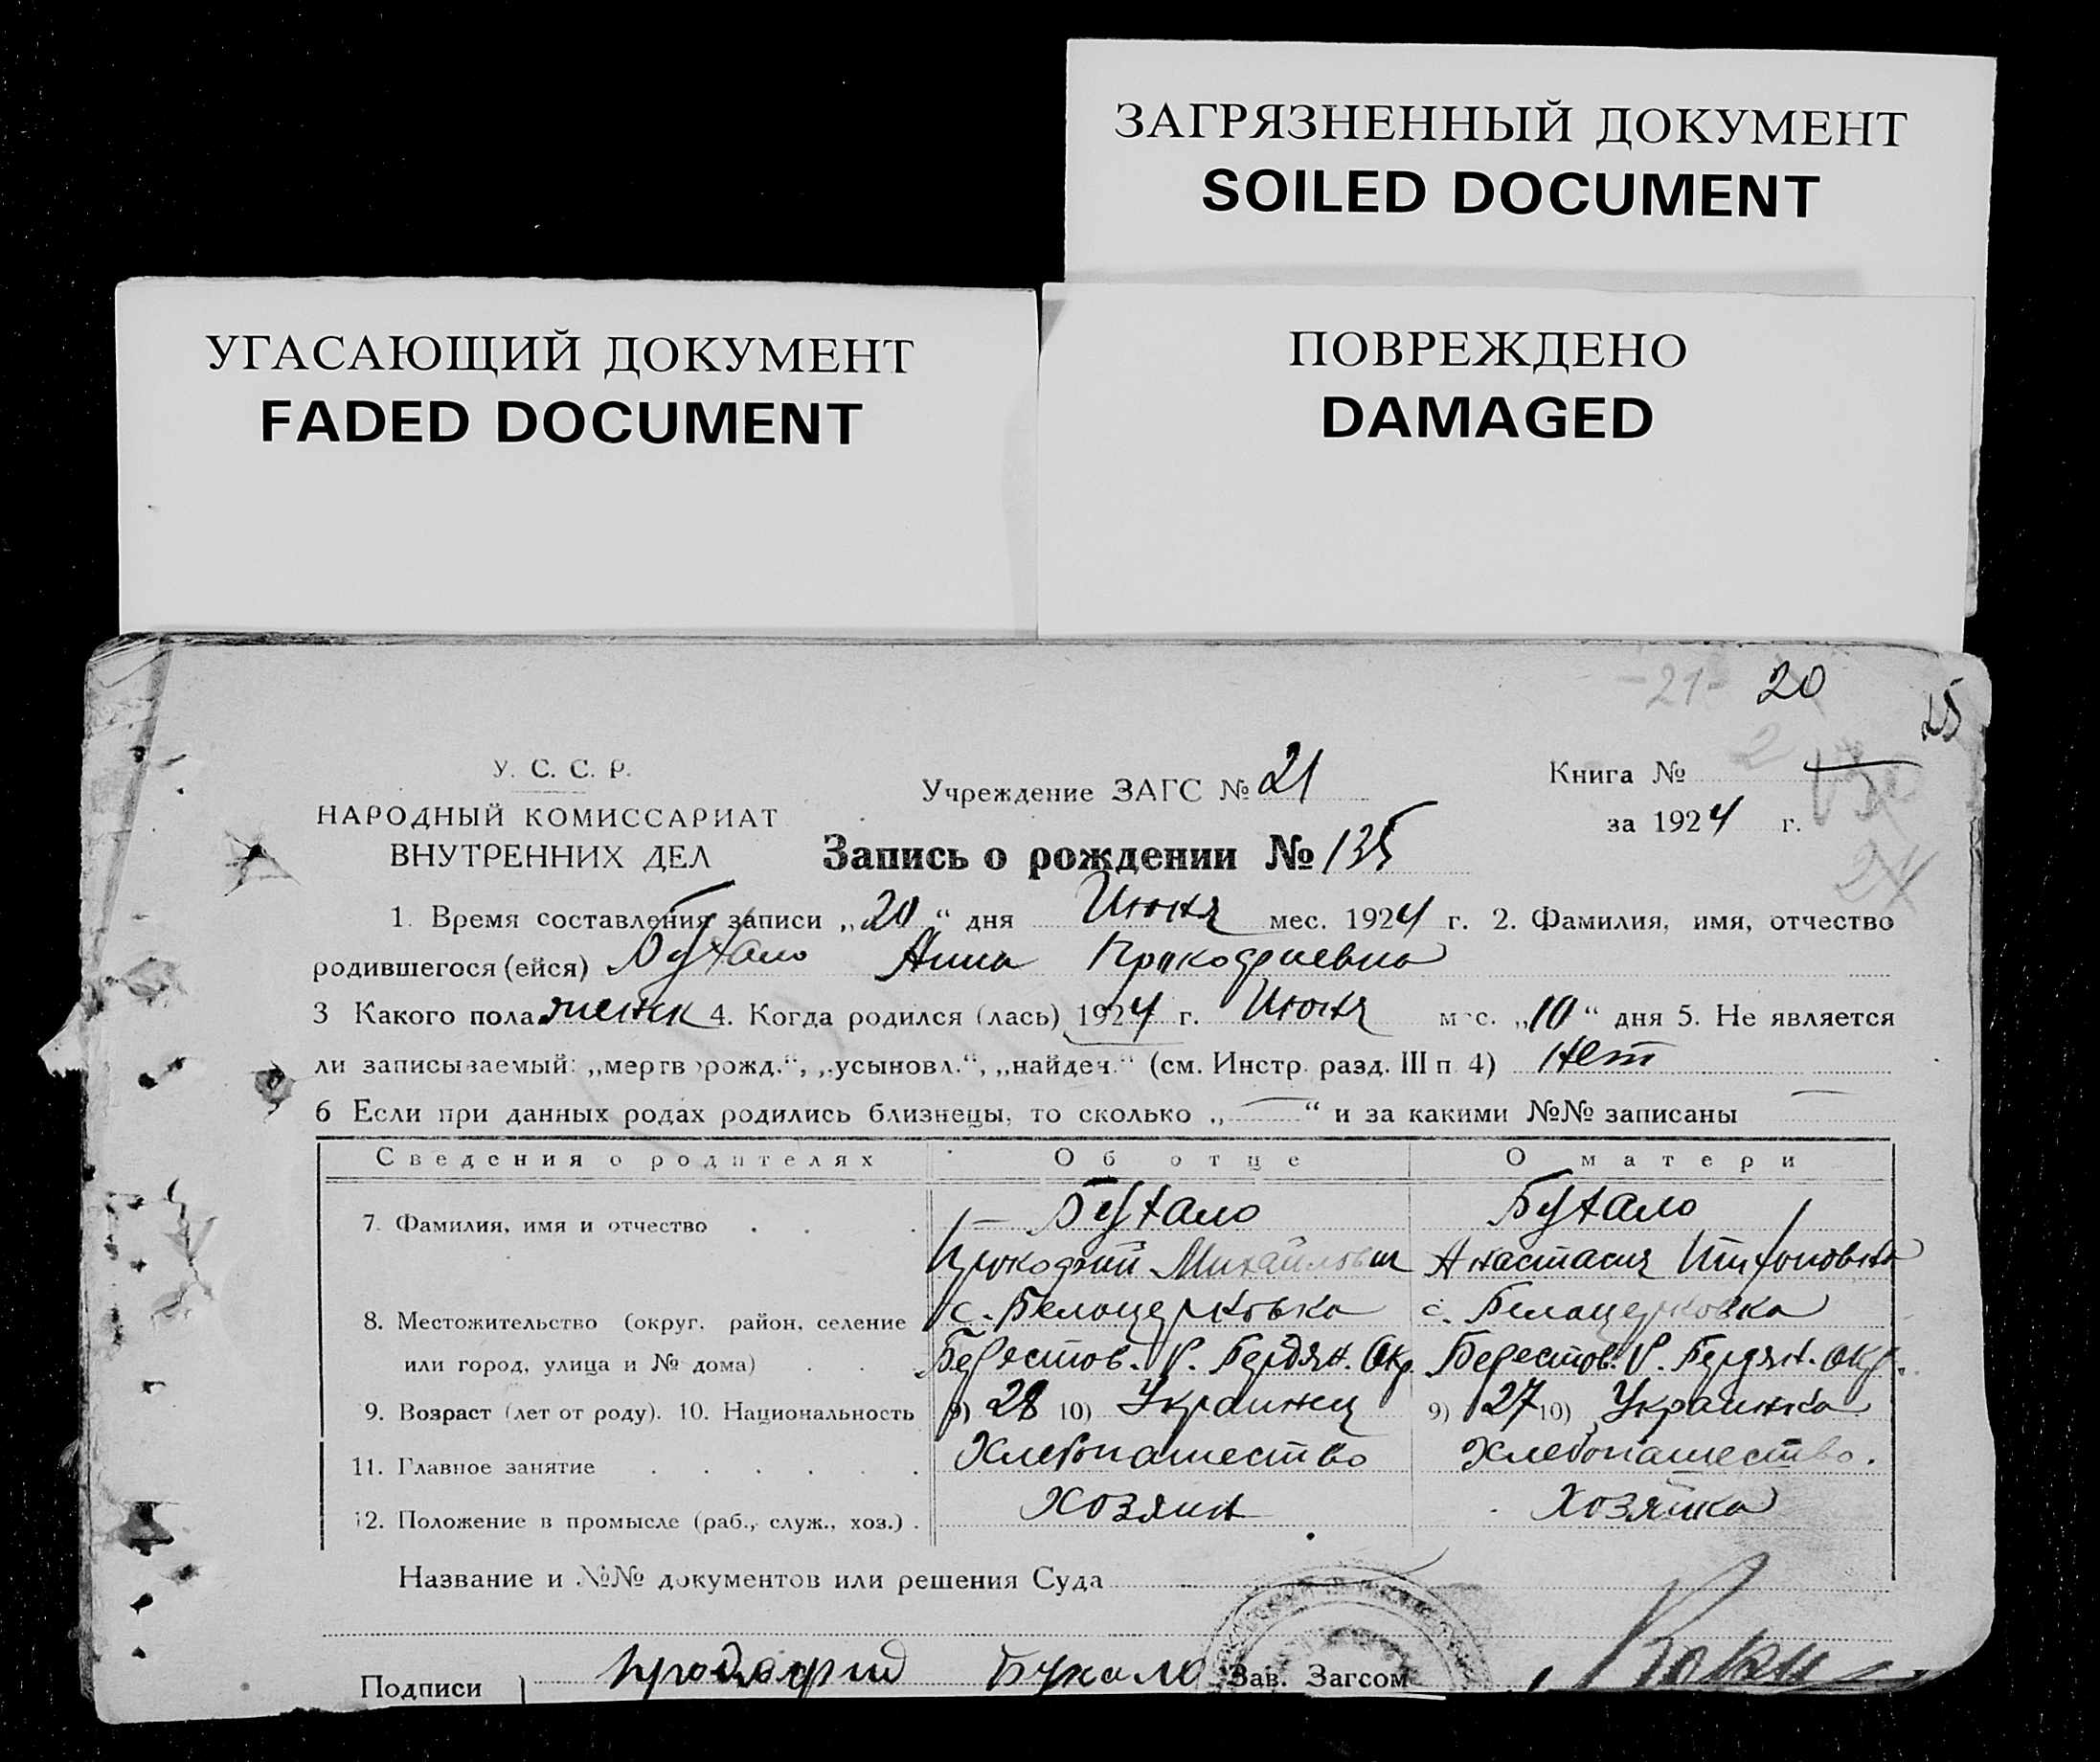 ЗАГРЯЗНЕННЫЙ ДОКУМЕНТ
SOILED DOCUMENT
УГАСАЮЩИЙ ДОКУМЕНТ
FADED DOCUMENT
ПОВРЕЖДЕНО
DAMAGED
-21- 20
25
У. С. С. Р.
НАРОДНЫЙ КОМИССАРИАТ
ВНУТРЕННИХ ДЕЛ
Учреждение ЗАГС № 21
Книга № 2
за 1924 г.
24
Запись о рождении № 135
1. Время составления записи „20“ дня Июня мес. 1924 г. 2. Фамилия, имя, отчество
родившегося (ейся) Бухало Анна Прокофиевна
3 Какого пола женск 4. Когда родился (лась) 1924 г. Июня мес. „10“ дня 5. Не является
ли записываемый: „мертворожд.“, „усыновл.“, „найден.“ (см. Инстр. разд. III п. 4) Нет
6 Если при данных родах родились близнецы, то сколько „—“ и за какими №№ записаны —
Сведения о родителях Об отце О матери
7. Фамилия, имя и отчество . . . Бухало Бухало
Прокофий Михайлович Анастасия
8. Местожительство (округ, район, селение с. Белоцерковка с. Белоцерковка
или город, улица и № дома) . . Берестов. Р. Бердян. Окр. Берестов. Р. Бердян. Окр.
9. Возраст (лет от роду). 10. Национальность 9) 28 10) Украинец 9) 27 10) Украинка
11. Главное занятие . . . . . . Хлебопашество Хлебопашество.
12. Положение в промысле (раб., служ., хоз.) . Хозяин Хозяйка
Название и №№ документов или решения Суда
Подписи Бухало Зав. Загсом